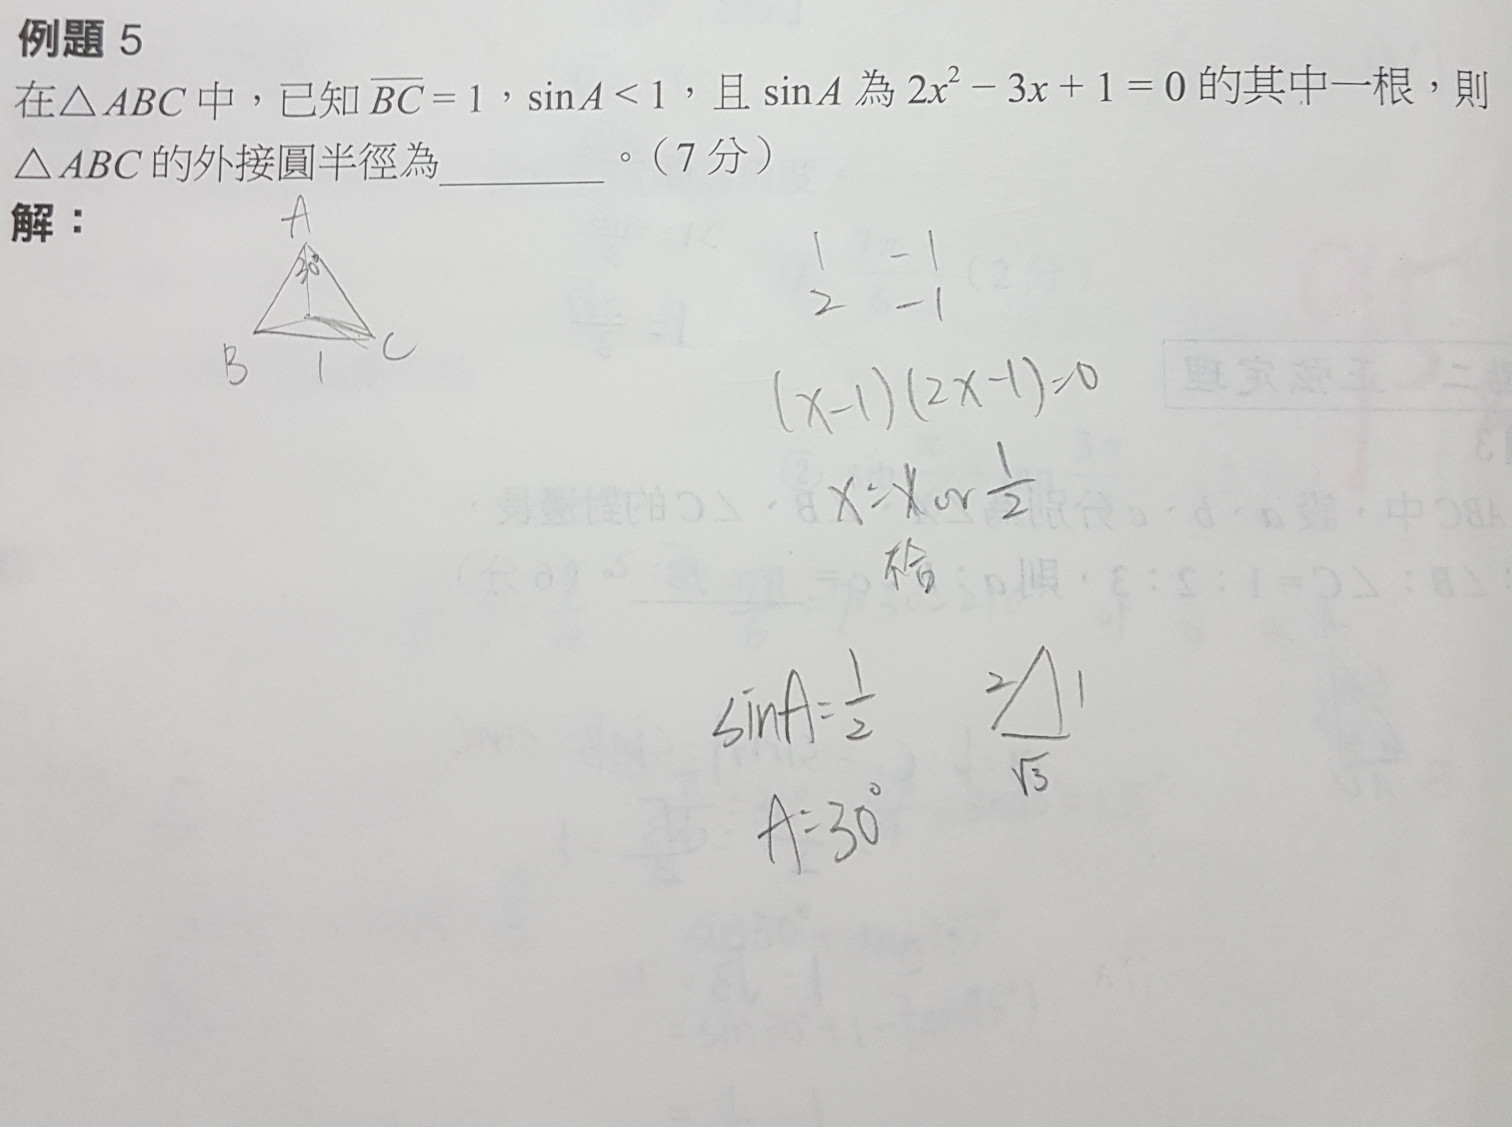 例題 5
在△ABC 中，已知 BC = 1，sin A < 1，且 sin A 為 2x² − 3x + 1 = 0 的其中一根，則
△ABC 的外接圓半徑為________。（7 分）
解：
A
30°
B 1 C
1 −1
2 −1
(x−1)(2x−1)=0
x=1 or 1/2
sinA=1/2
2 1
√3
A=30°